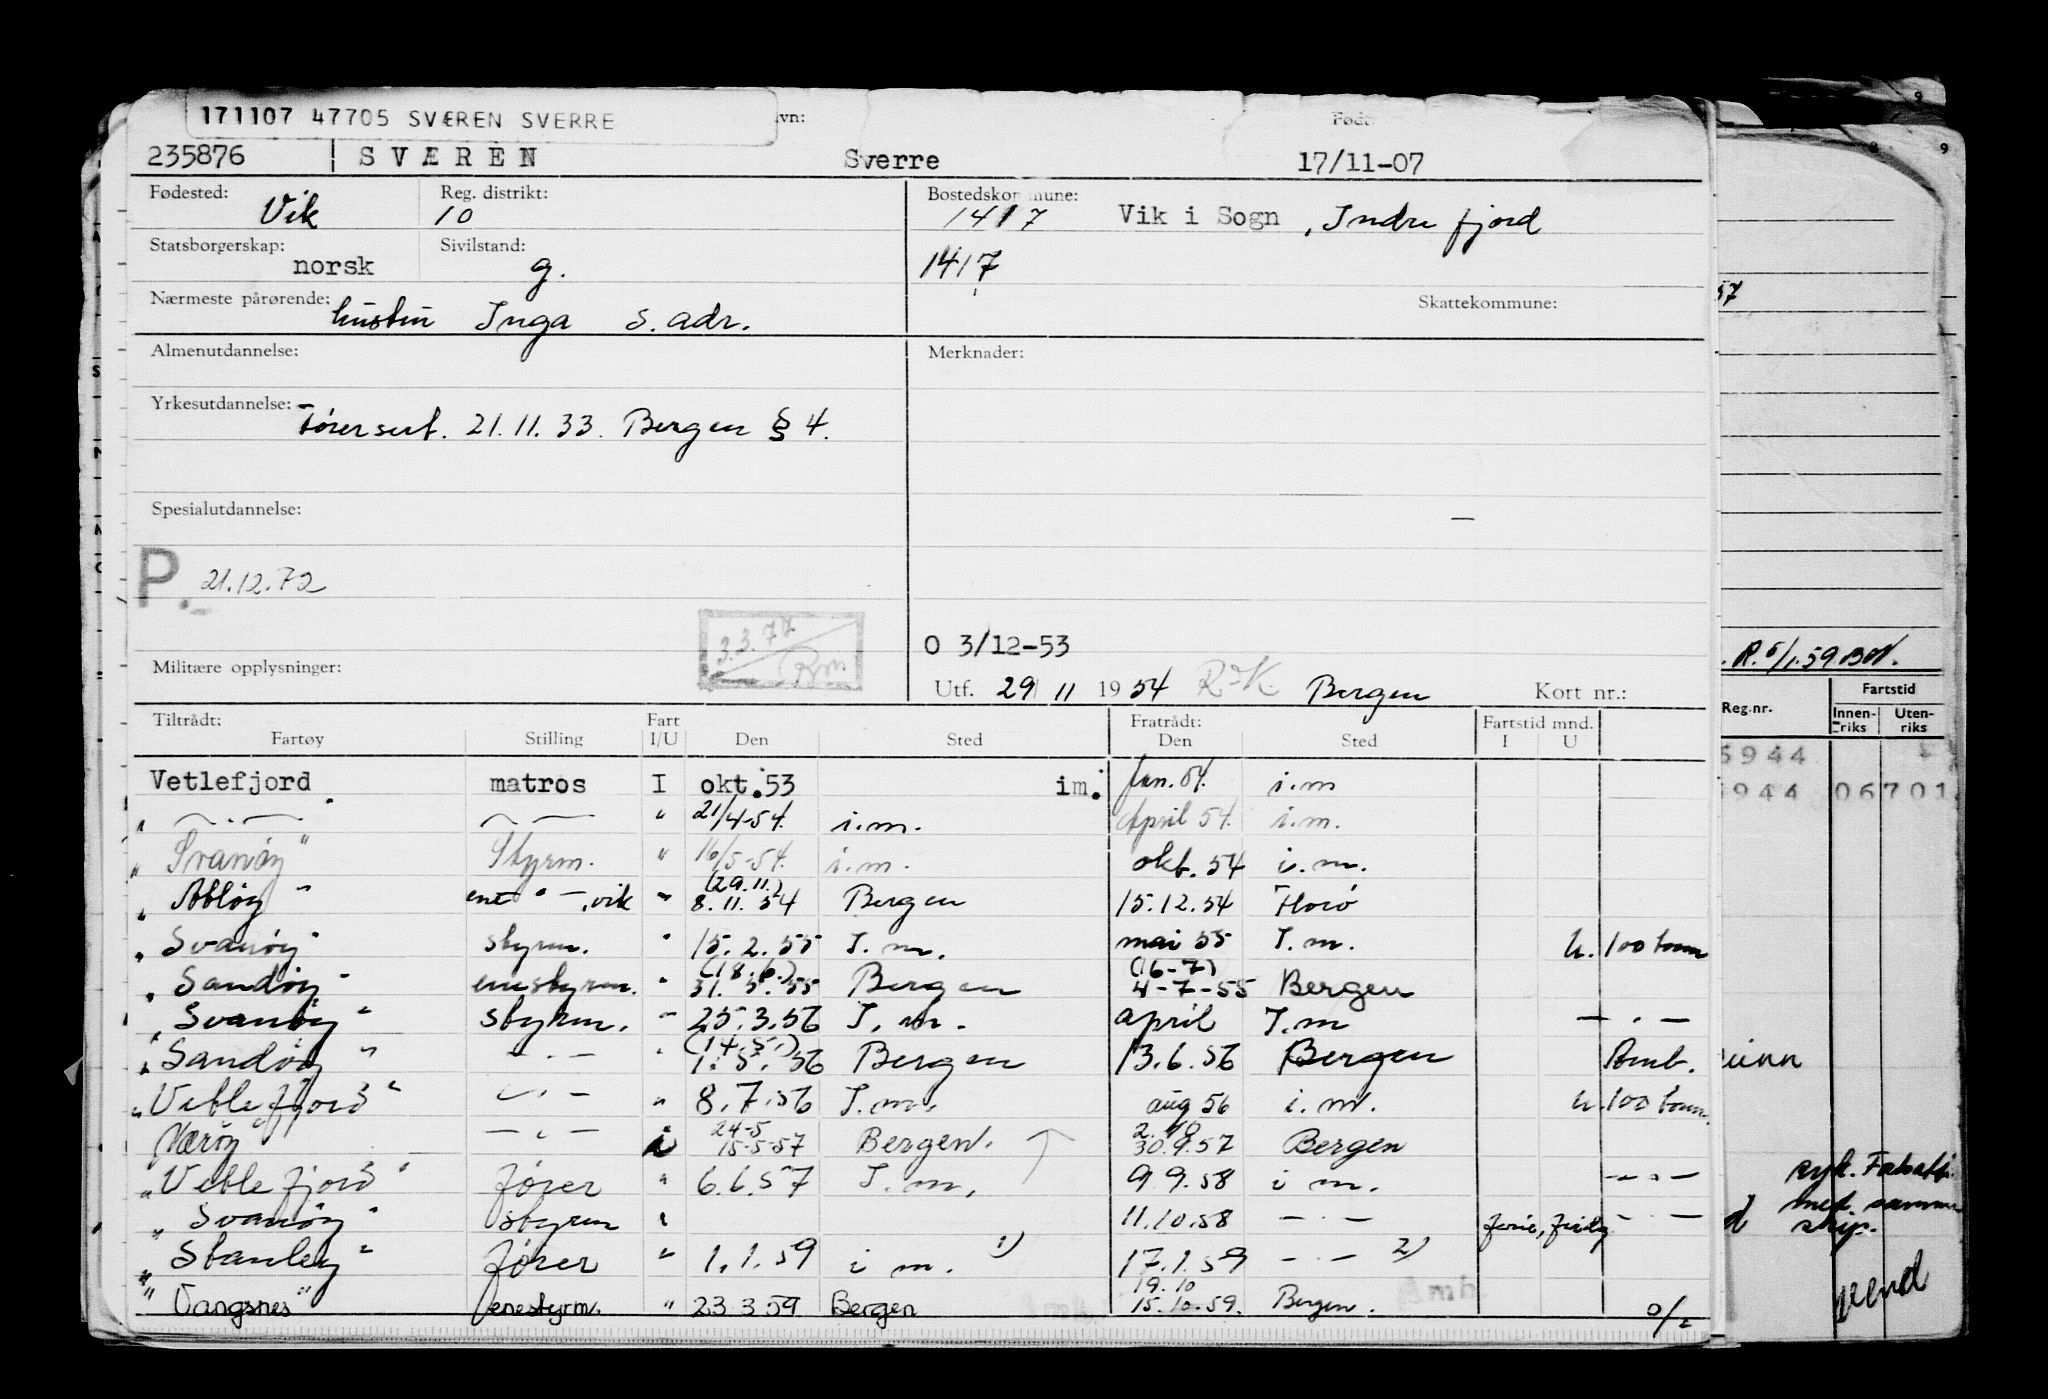 171107 47705 SVÆREN SVERRE vn: Født:
235876 SVÆREN Sverre 17/11-07
Fødested: Vik Reg. distrikt: 10 Bostedskommune: 1417 Vik i Sogn, Indre fjord
Statsborgerskap: norsk Sivilstand: g. 1417
Nærmeste pårørende: hustru Inga s. adr. Skattekommune:
Almenutdannelse: Merknader:
Yrkesutdannelse: Førersert. 21.11.33. Bergen § 4.
Spesialutdannelse:
P. 21.12.72
3.3.77 Rm
O 3/12-53
Militære opplysninger: Utf. 29 11 1954 Bergen Kort nr.:
Tiltrådt: Fart Fratrådt: Fartstid mnd.
Fartøy Stilling I/U Den Sted Den Sted I U
Vetlefjord matros I okt.53 im. Jan. 54. i.m
" — . — — — " 21/4-54. i.m. April 54. i.m.
"Svanøy" Styrm. " 16/5-54. i.m. okt. 54 i.m.
(29.11.)
"Atløy" ene " —, vik " 8.11.54 Bergen 15.12.54 Florø
"Svanøy" styrm. " 15.2.55 I.m. mai 55 I.m. u. 100 tonn
(18.6.) (16-7)
"Sandøy" enestyrm. " 31.5.55 Bergen 4-7-55 Bergen
"Svanøy" styrm. " 25.3.56 I.m. april I.m — . —
(14.5.)
"Sandøy" — . — " 1.5.56 Bergen 13.6.56 Bergen Amb.
"Vetlefjord" — . — " 8.7.56 I.m. aug 56 i.m. u. 100 tonn.
24-5 2.10
Værøy" — . — i 15-5-57 Bergen. 30.9.57 Bergen
"Vetlefjord" fører " 6.6.57 I.m. 9.9.58 i m. — . —
"Svanøy" styrm " 11.10.58 — . — ferie, — . —
"Stanley" fører " 1.1.59 i m. 1) 17.1.59 — . — 2)
19.10
"Vangsnes" enestyrm. " 23 3 59 Bergen 15.10.59. Bergen. Amb
9
9
57
. R. 5/1.59.
Fartstid
Reg.nr. Innen-riks Uten-riks
5944
5944 06701
syk.
med samme
skip.
vend